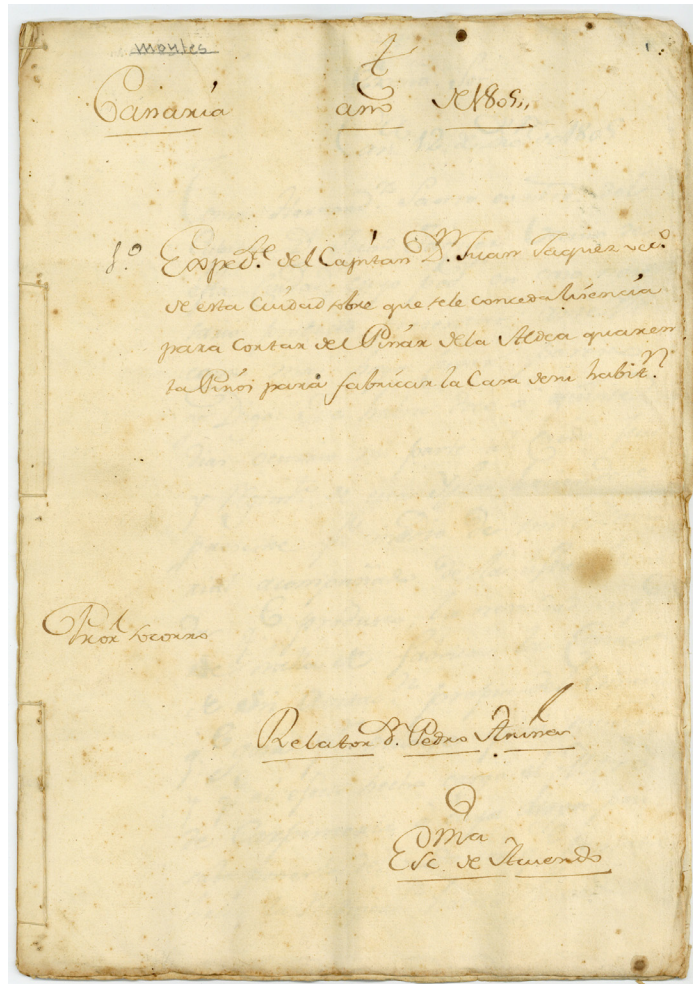 montes
Canaria año de 1805,,
1.º Exped.te del Capitan D.n Juan Jaquez vec.º
de esta Ciudad sobre que sele conceda lisencia
para Cortar del Pinar dela Aldea quaren
ta Pinos para fabricar la Casa desu habit.n
Pror. Socorro
Relator D. Pedro
Esc.nia de Acuerdo